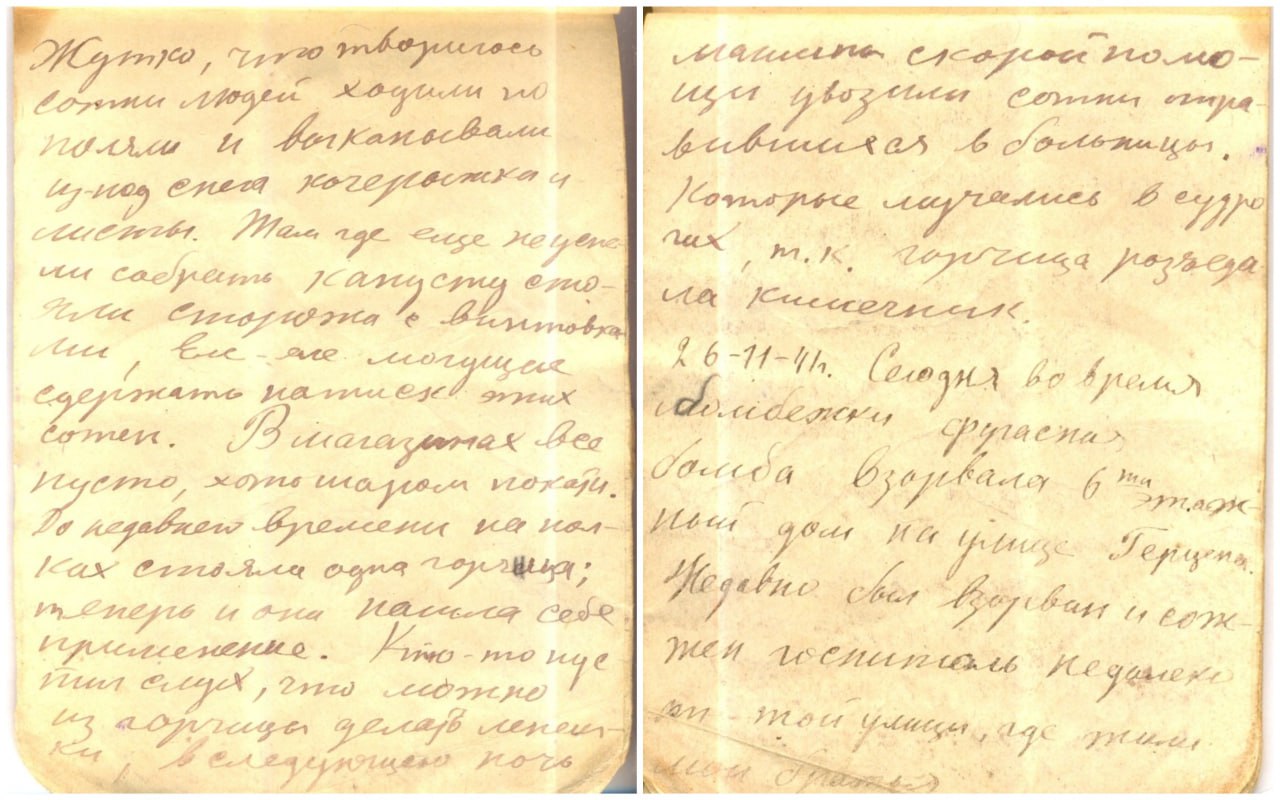 Жутко, что творилось
сотни людей ходили по
полям и выкапывали
из-под снега кочерыжки и
листы. Там где еще не успе-
ли собрать капусту сто-
яли сторожа с винтовка
ми, еле-еле могущие
сдержать натиск этих
сотен. В магазинах все
пусто, хоть шаром покати.
До недавнего времени на пол-
ках стояла одна горчица;
теперь и она нашла себе
применение. Кто-то пус
тил слух, что можно
из горчицы делать лепеш-
ки, в следующую ночь
машины скорой помо-
щи увозили сотни отра-
вившихся в больницы.
Которые мучались в судро
гах, т.к. горчица розъеда-
ла кишечник.
26-11-41г. Сегодня во время
бомбежки фугасная
бомба взорвала 6ти этаж-
ный дом на улице Герцена.
Недавно был взорван и сож-
жен госпиталь недалеко
от той улици, где жили
мои братья